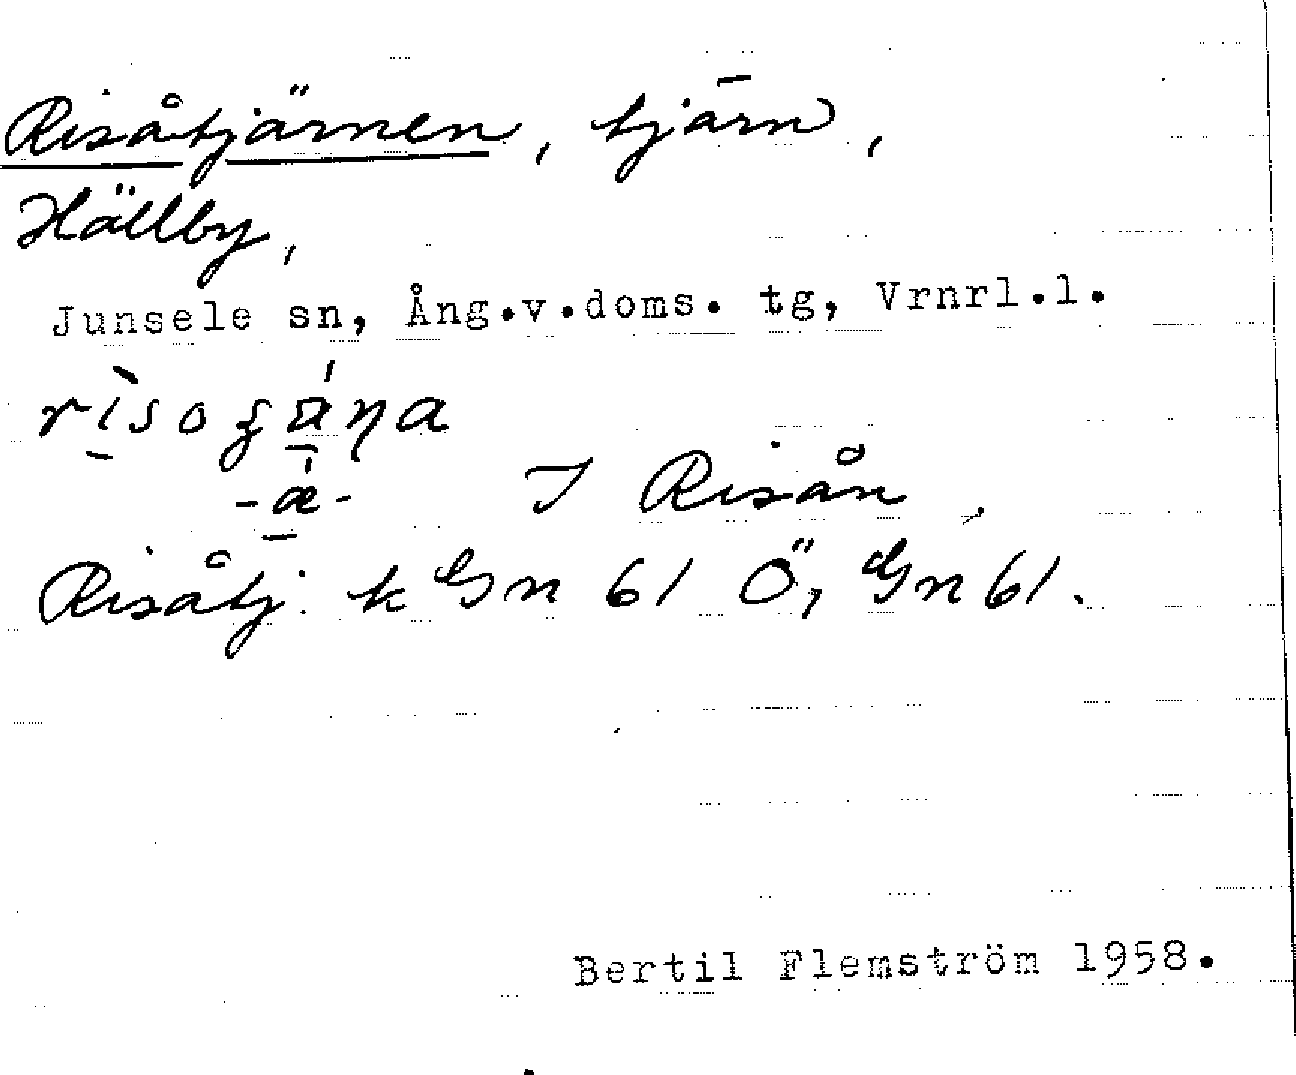 Risåtjärnen, tjärn,
Hällby,
Junsele sn, Ång.v.doms. tg, Vrnrl.l.
-æ- I Risån,
Risåtj. k Gn 61 Ö, Gn 61.
Bertil Flemström 1958.